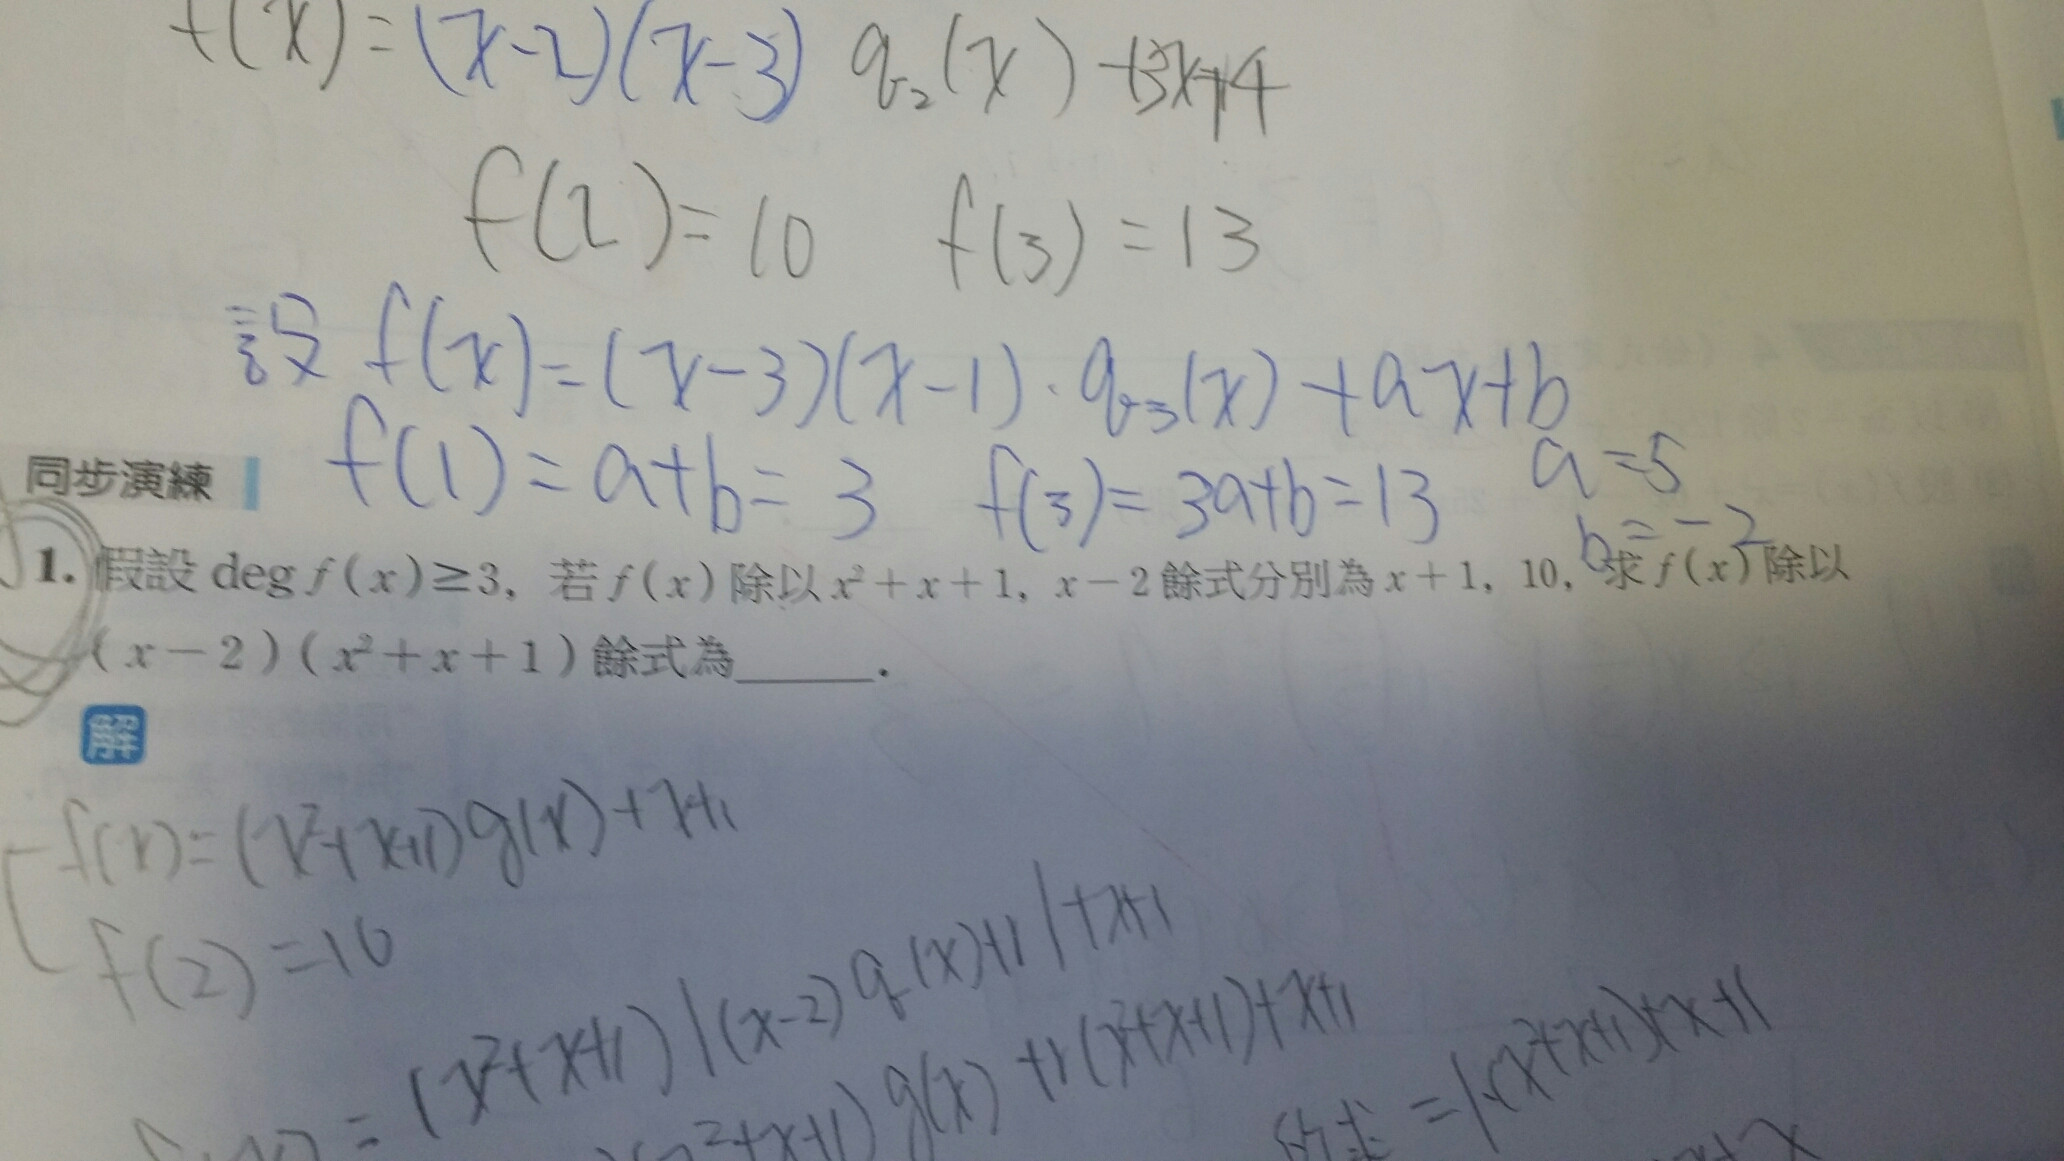 f(x)=(x-2)(x-3) q₂(x) +3x+4
f(2)=10 f(3)=13
設 f(x)=(x-3)(x-1)·q₃(x)+ax+b
f(1)=a+b=3 f(3)=3a+b=13 a=5
b=-2
同步演練
1. 假設 deg f(x)≥3, 若 f(x) 除以 x²+x+1, x-2 餘式分別為 x+1, 10, 求 f(x) 除以
(x-2)(x²+x+1) 餘式為______.
解
f(x)=(x²+x+1)g(x)+x+1
f(2)=10
=(x²+x+1)[(x-2)q(x)+r]+x+1
(x²+x+1)g(x)+r(x²+x+1)+x+1
=r(x²+x+1)+x+1